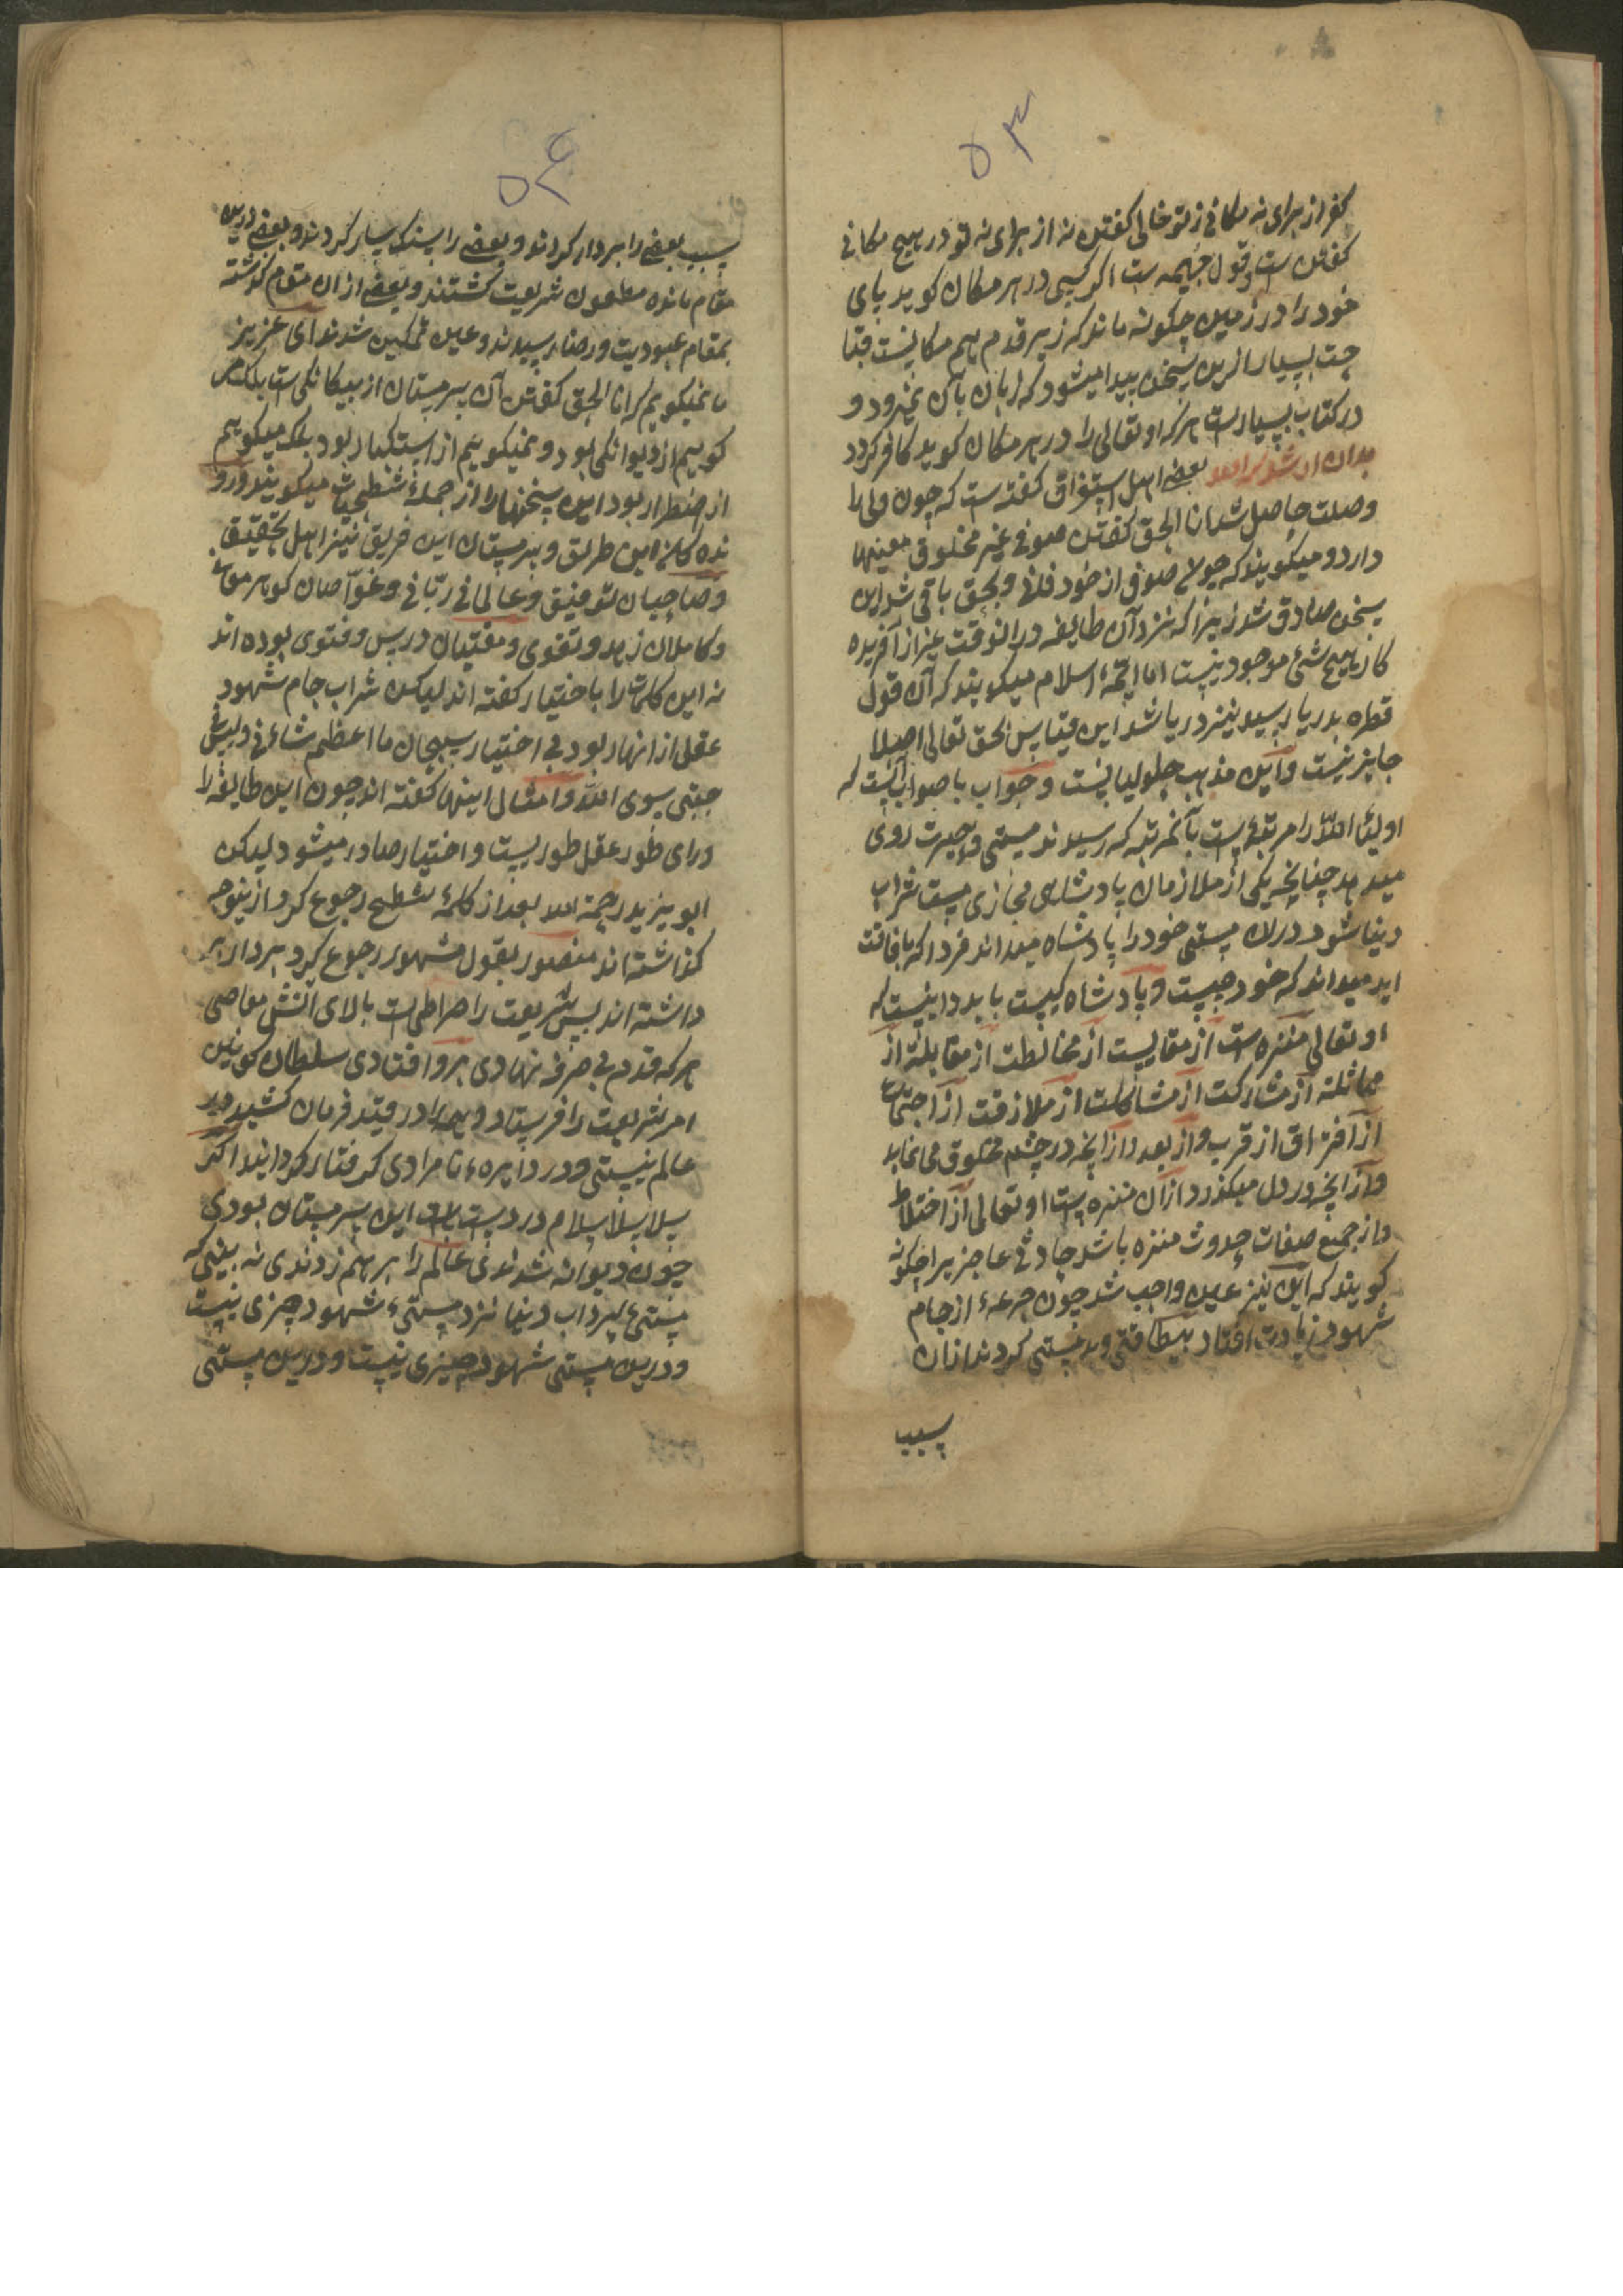 ۵۳
کفر از برای نه مکانی ز تو خالی کفتن نه از برای نه تو در هیچ مکانی
کفتن است و قول جهیمه ست اکر کسی در هر مکان کوید پای
خود را در زمین چکونه ماند که زیر قدم هم مکانیست قبا
حت بسیار ازین سخن پیدا میشود که زبان بآن نمیرود و
در کتاب بسیارست هر که او تعالی را در هر مکان کوید کافر کردد
بدان ارشدک الله بعضی اهل استغراق کفته ست که چون ولی را
وصلت حاصل شد انا الحق کفتن صوفی غیر مخلوق معینها
دارد و میکویند که چون صوفی از خود فانی و بحق باقی شد این
سخن صادق شد زیرا که نزد آن طایفه در انوقت غیر از آفریده
کار هیچ شئ موجود نیست اما ائمهٔ اسلام میکویند که آن قول
قطره بدریا رسید نیز دریا شد این قیاس بحق تعالی اصلا
جایز نیست و این مذهب حلولیانست و جواب با صواب آنست که
اولیاء الله را مرتبهٔ ست بآنمرتبه که رسیدند مستی و حیرت روی
میدهد چنانچه یکی از ملازمان پادشاهی مجازی مست شراب
دنیا شود در ان مستی خود را پادشاه میداند فردا که با فاقت
اید میداند که خود چیست و پادشاه کیست باید دانست که
او تعالی منزه است از مقایست از مخالطت از مقابلته از
مماثلته از مشارکت از مشاکلت از ملازقت از اجتماع
از افتراق از قرب و از بعد و از انچه در چشم مخلوق می نماید
و از انچه در دل میکذرد از ان منزه ست او تعالی از اختلاط
و از جمیع صفات حدوث منزه باشد حادثی عاجز یرا چکونه
کویند که این نیز عین واجب شد چون جرعهٔ از جام
شهود زیادت افتاد بیطاقتی و بدمستی کردند از ان
سبب
۵۴
سبب بعضی را بردار کردند و بعضی را سنک سار کردند و بعضی درین
مقام مانده مطعون شریعت کشتند و بعضی از ان مقام کذشته
بمقام عبودیت و رضا رسیدند و عین تمکین شدند ای عزیز
ما نمیکویم که انا الحق کفتن آن سرمستان از بیکانکی است بلکه می
کوییم از دیوانکی بود و نمیکوییم از استکبار بود بلکه میکوییم
از اضطرار بود این سخنها را از جملهٔ شطحیات میکویند و رو
نده کان این طریق و سرمستان این فریق نیز اهل تحقیق
و صاحبان توفیق و عالمانی ربّانی و غوّاصان کوهر معانی
و کاملان زهد و تقوی و مفتیان درس و فتوی بوده اند
نه این کلمات را باختیار کفته اند لیکن شراب جام شهود
عقل از انها ربود بی اختیار سبحان ما اعظم شانی و لیس فی
جبتی سوی الله و امثال اینها کفته اند چون این طایفه را
ورای طور عقل طوریست و اختیار صادر میشود لیکن
ابو یزید رحمة الله بعد از کلمهٔ شطح رجوع کرد ازینوجه
کذاشته اند منصور بقول مشهور رجوع نکرد بردار بر
داشته اند پس شریعت را صراطی است بالای آتش معاصی
هر که قدم بی صرفه نهادی بر و افتادی سلطان کونین
امر شریعت را فرستاد و همه را در قید فرمان کشید و در
عالم نیستی و در دایره نامرادی کرفتار کردانید اکر
سلاسل اسلام در دست این سرمستان بودی
چون دیوانه شدندی عالم را بر هم زدندی نه بینی که
مستی شراب دنیا نزد مستیٔ شهود چیزی نیست
و درین مستی شهود چیزی نیست و درین مستی